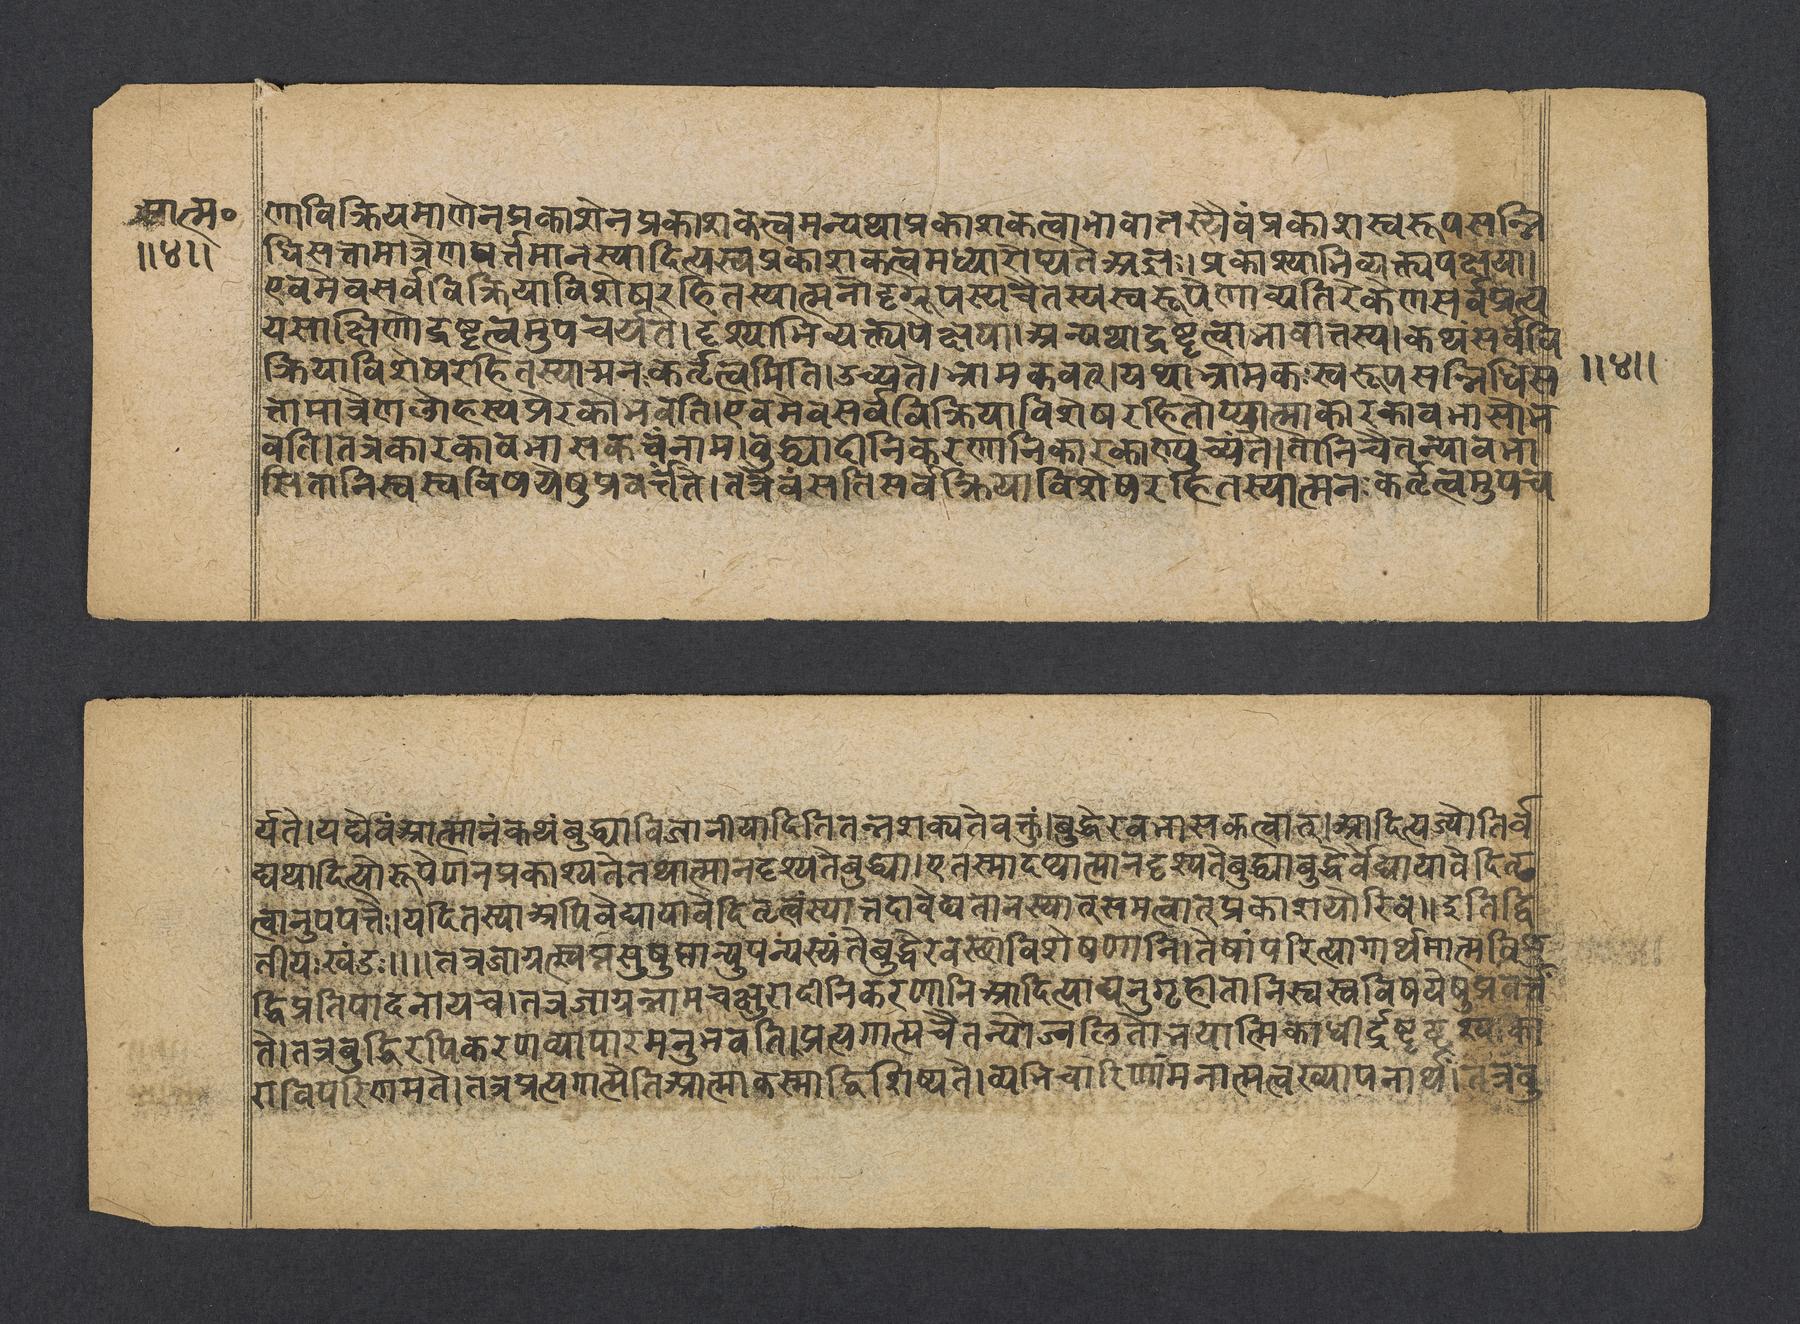 आत्म०
॥४॥
णाविक्रियमाणेनप्रकाशेनप्रकाशकत्वमन्यथाप्रकाशकत्वाभावात्तस्यैवंप्रकाशस्वरूपसन्नि
धिसत्तामात्रेणवर्त्तमानस्यादित्यस्यप्रकाशकत्वमध्यारोप्यतेअज्ञैः।प्रकाश्याभिव्यक्त्यपेक्षया।
एवमेवसर्वविक्रियाविशेषरहितस्यात्मनोदृग्रूपस्यचैतस्यस्वरूपेणाव्यतिरेकेणसर्वप्रत्य
यसाक्षिणोद्रष्टृत्वमुपचर्यते।दृश्याभिव्यक्त्यपेक्षया।अन्यथाद्रष्टृत्वाभावात्तस्य।कथंसर्ववि
क्रियाविशेषरहितस्यात्मनःकर्तृत्वमिति।उच्यते।भ्रामकवत्।यथाभ्रामकःस्वरूपसन्निधिस
त्तामात्रेणलोहस्यप्रेरकोभवति।एवमेवसर्वविक्रियाविशेषरहितोप्यात्माकारकावभासोभ
वति।तत्रकारकावभासकत्वंनाम।बुद्ध्यादीनिकरणानिकारकाण्युच्यते।तानिचैतन्यावभा
सितानिस्वस्वविषयेषुप्रवर्त्तंते।तत्रैवंसतिसर्वक्रियाविशेषरहितस्यात्मनःकर्तृत्वमुपच
॥४॥
र्यते।यद्येवंआत्मानंकथंबुद्ध्याविजानीयादितितन्नशक्यतेवक्तुं।बुद्धेरवभासकत्वात्।आदित्यज्योतिर्व
द्यथादित्योरूपेणनप्रकाश्यतेतथात्मानदृश्यतेबुद्ध्या।एतस्मादप्यात्मानदृश्यतेबुद्ध्याबुद्धेर्वेद्यायावेदितृ
त्वानुपपत्तेः।यदितस्याअपिवेद्यायावेदितृत्वंस्यात्तदावेद्यतानस्यात्समत्वात्प्रकाशयोरिव॥इतिद्वि
तीयःखंडः॥॥तत्रजाग्रत्स्वप्नसुषुप्तान्युपन्यस्यंतेबुद्धेरवस्थाविशेषणानि।तेषांपरित्यागार्थमात्मविशु
द्धिप्रतिपादनायच।तत्रजाग्रन्नामचक्षुरादीनिकरणानिआदित्याद्यनुगृहीतानिस्वस्वविषयेषुप्रवर्त्तं
ते।तत्रबुद्धिरपिकरणव्यापारमनुभवति।प्रत्यगात्मचैतन्योज्वलितात्रयात्मिकाधीर्द्रष्टृदृश्यका
राविपरिणमते।तत्रप्रत्यगात्मेतिआत्माकस्माद्विशिष्यते।व्यभिचारिणामनात्मत्वख्यापनार्थं।तत्रबु